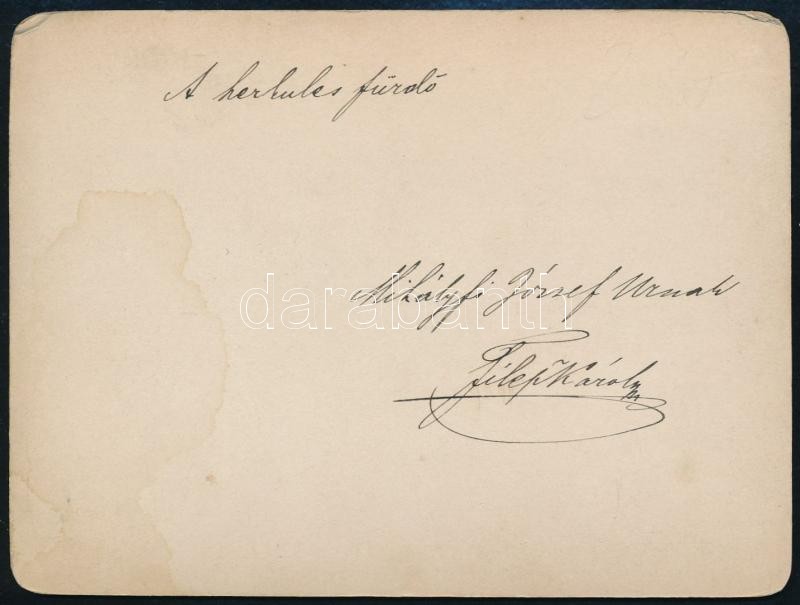 A herkules fürdő
Mihályfi József Urnak
darabanth
Filep Károly